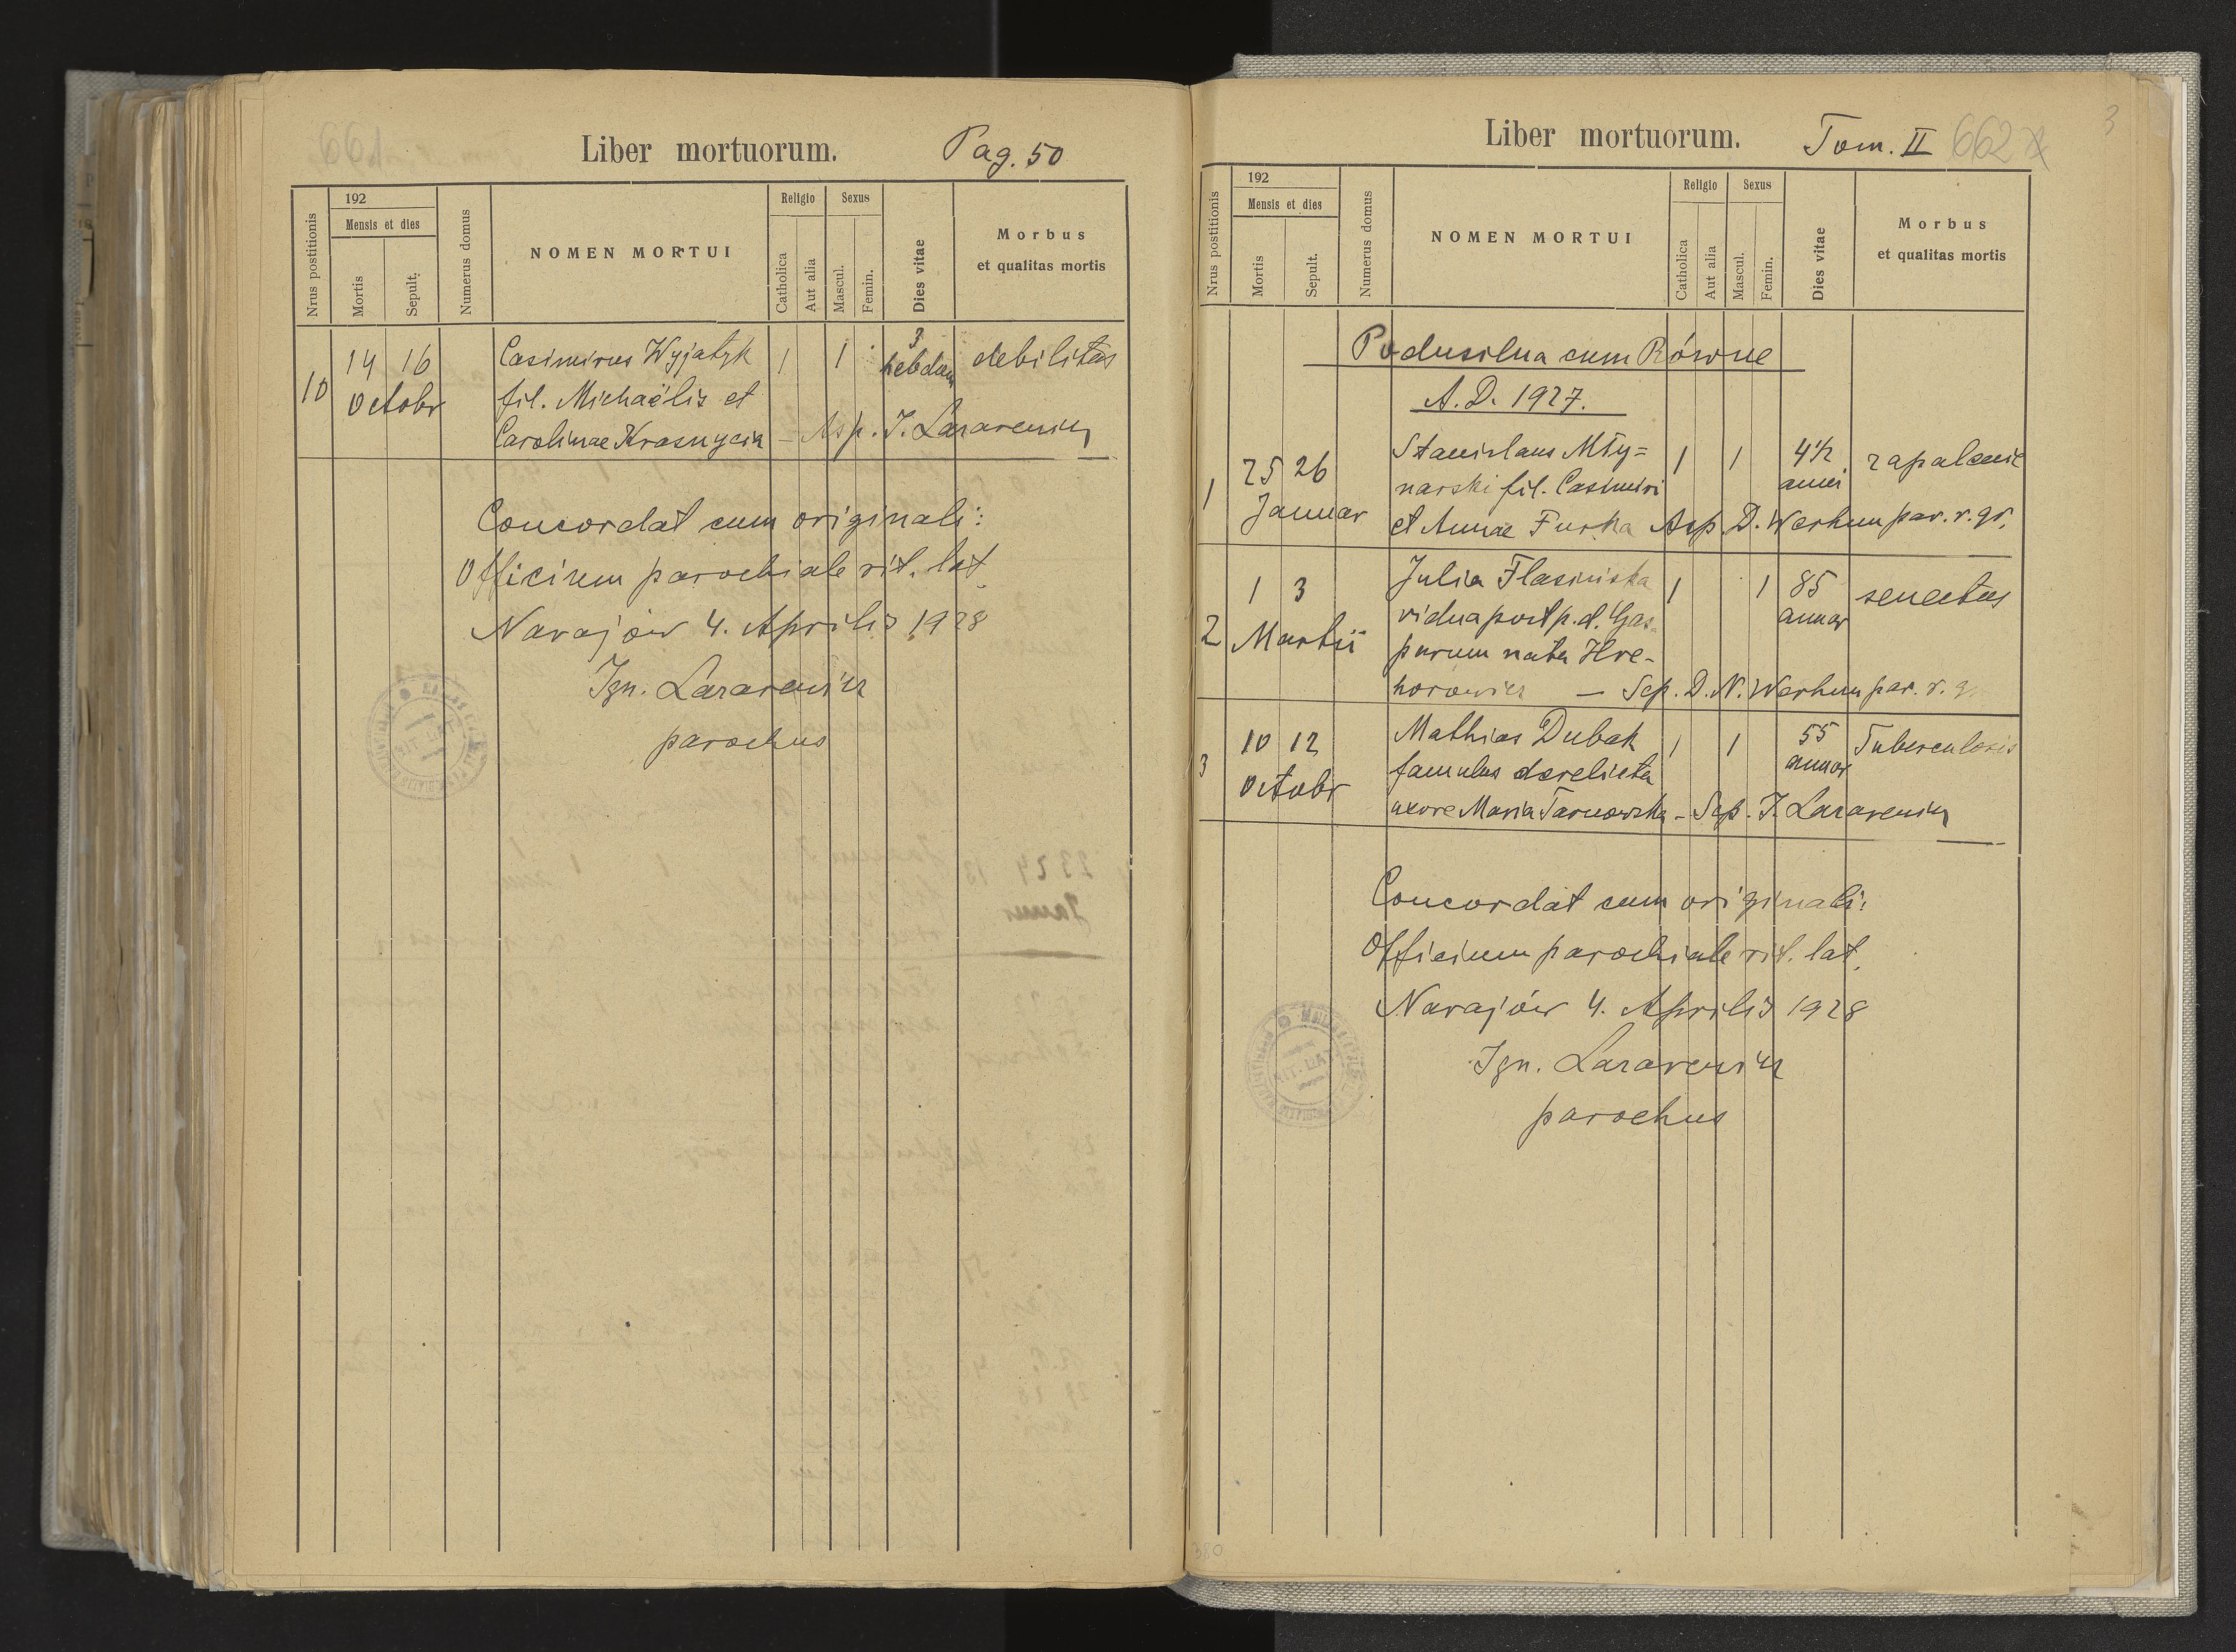 661
Liber mortuorum.
Pag. 50
Nrus postitionis
192
Mensis et dies
Mortis
Sepult.
Numerus domus
NOMEN MORTUI
Religio
Catholica
Aut alia
Sexus
Mascul.
Femin.
Dies vitae
Morbus
et qualitas mortis
10
14 16
Octobr
Casimirus Wyjatyk
fil. Michaëlis et
Carolinae Krasnycia
1
1
3
hebdom
debilitas
J. Lazarewicz
Concordat cum originali:
Officium parochiale rit. lat.
Narajów 4. Aprilis 1928
Ign. Lazarewicz
parochus
Liber mortuorum.
Tom. II
662
3
Nrus postitionis
192
Mensis et dies
Mortis
Sepult.
Numerus domus
NOMEN MORTUI
Religio
Catholica
Aut alia
Sexus
Mascul.
Femin.
Dies vitae
Morbus
et qualitas mortis
Podusilna cum Równe
A. D. 1927.
1
25 26
Januar
Stanislaus Mły=
narski fil. Casimiri
et Annae Furka
1
1
4½
anni
zapalenie
Sep. D. Werhun par. r. gr.
2
1 3
Martii
Julia Flasinska
vidua post p. d. Gas-
parum nata Hre-
horowicz
1
1
85
annor
senectus
— Sep. D. N. Werhun par. r. g.
3
10 12
Octobr
Mathias Dubak
famulus derelicta
uxore Maria Tarnowska
1
1
55
annor
Tuberculosis
— Sep. J. Lazarewicz
Concordat cum originali:
Officium parochiale rit. lat.
Narajów 4. Aprilis 1928
Ign. Lazarewicz
parochus
380